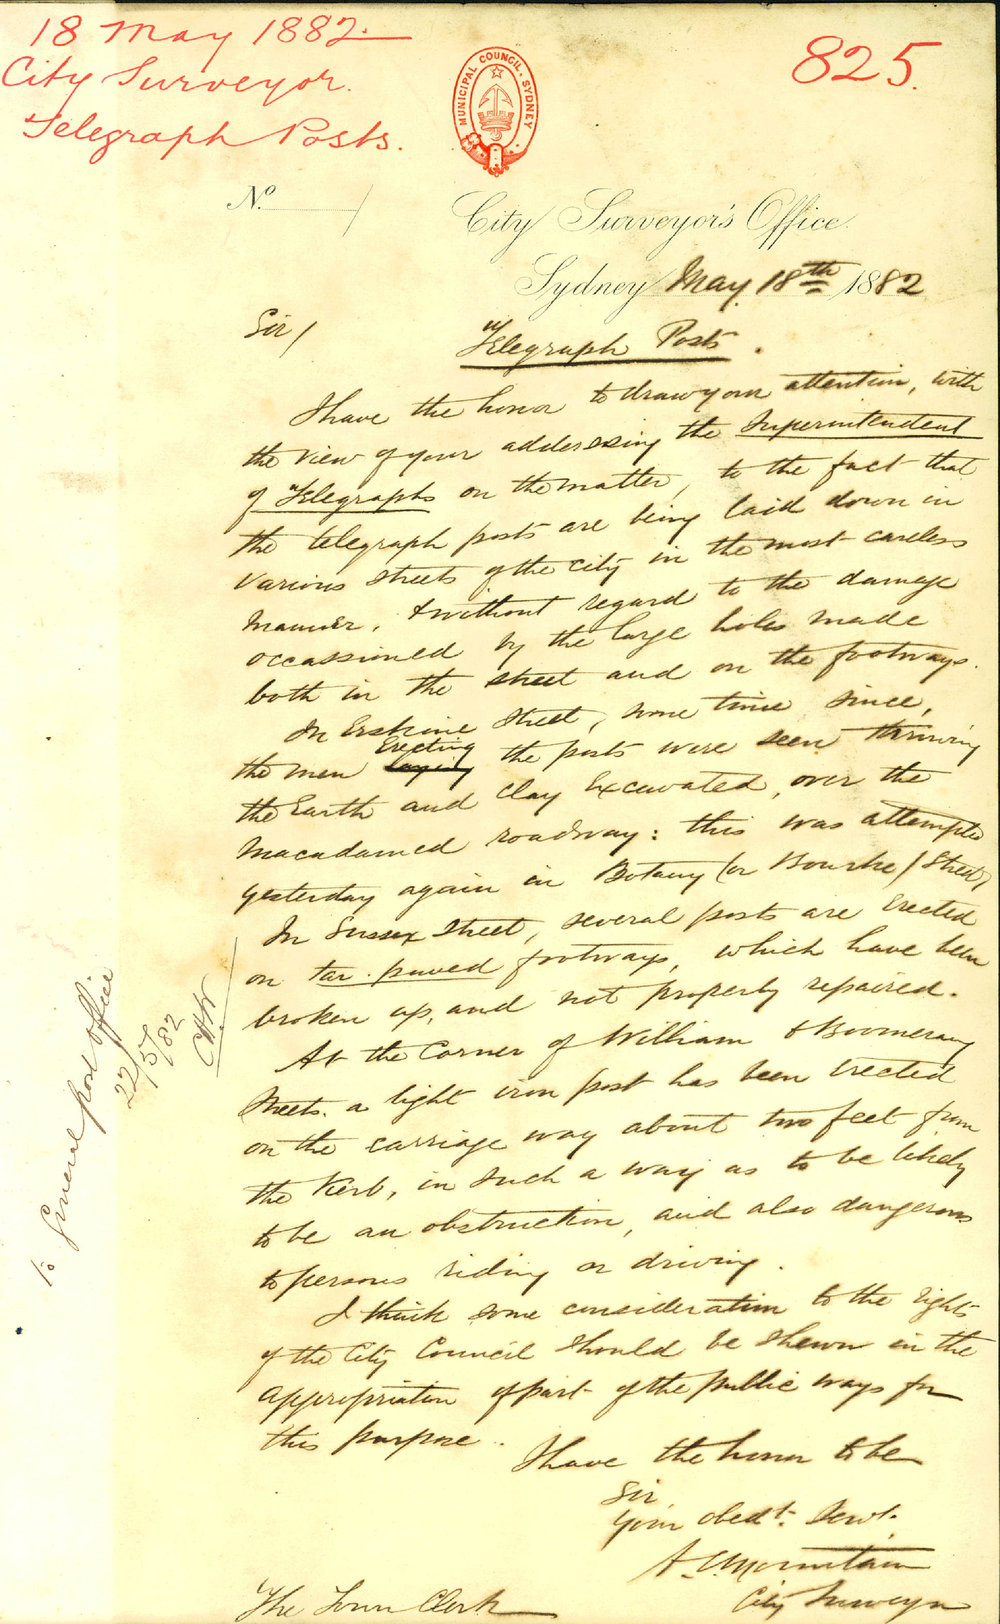 18 May 1882.
City Surveyor.
Telegraph Posts.
825.
MUNICIPAL COUNCIL. SYDNEY
No. /
City Surveyor's Office.
Sydney May 18th 1882
Sir/
Telegraph Posts.
I have the honor to draw your attention, with
the view of your addressing the Superintendent
of Telegraphs on the matter, to the fact that
the telegraph posts are being laid down in
various streets of the city in the most careless
manner, & without regard to the damage
occassioned by the large holes made
both in the street and on the footways.
In Erskine Street, some time since,
the men laying Erecting the posts were seen throwing
the Earth and clay Excavated, over the
Macadamed roadway: this was attempted
yesterday again in Botany (or Bourke) Street,
In Sussex Street, several posts are Erected
on tar-paved footways, which have been
broken up, and not properly repaired.
At the Corner of William & Boomerang
Streets. a light iron post has been Erected
on the carriage way about two feet from
the Kerb, in such a way as to be likely
to be an obstruction, and also dangerous
to persons riding or driving.
I think some consideration to the rights
of the City Council should be shewn in the
appropriation of part of the public ways for
this purpose.
I have the honor to be
Sir
Your obedt. Servt.
A. C. Mountain
City Surveyor
The Town Clerk
To General post office
22/5/82